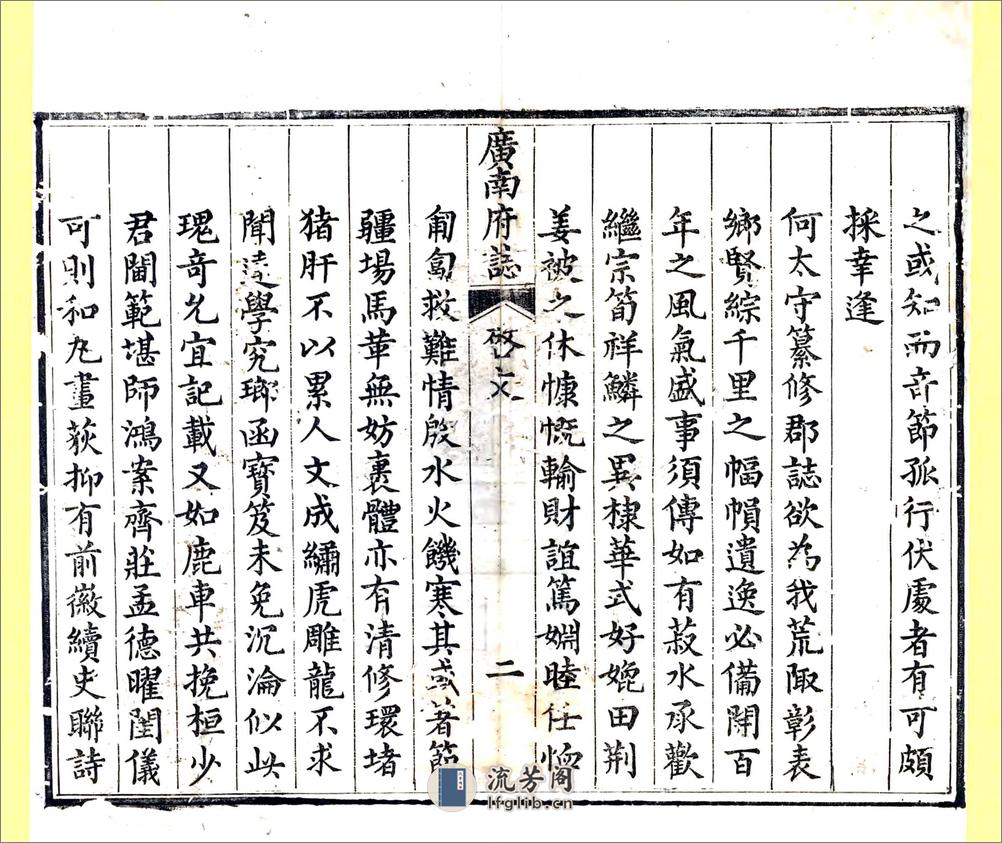 之或知而奇節孤行伏處者有可頗
採幸逢
何太守纂修郡誌欲為我荒陬彰表
鄉賢綜千里之幅幀遺逸必備闢百
年之風氣盛事須傳如有菽水承歡
繼宗筍祥鱗之異棣華式好媲田荆
姜被之休慷慨輸財誼篤婣睦任恤
廣南府誌
啓文
二
匍匐救難情殷水火饑寒其或著節
疆場馬革無妨裹體亦有清修環堵
猪肝不以累人文成繡虎雕龍不求
聞達學究瑯函寶笈未免沉淪似此
瑰奇允宜記載又如鹿車共挽桓少
君閫範堪師鴻案齊莊孟德曜閨儀
可則和丸畫荻抑有前徽續史聯詩
流芳阁
lfglib.cn